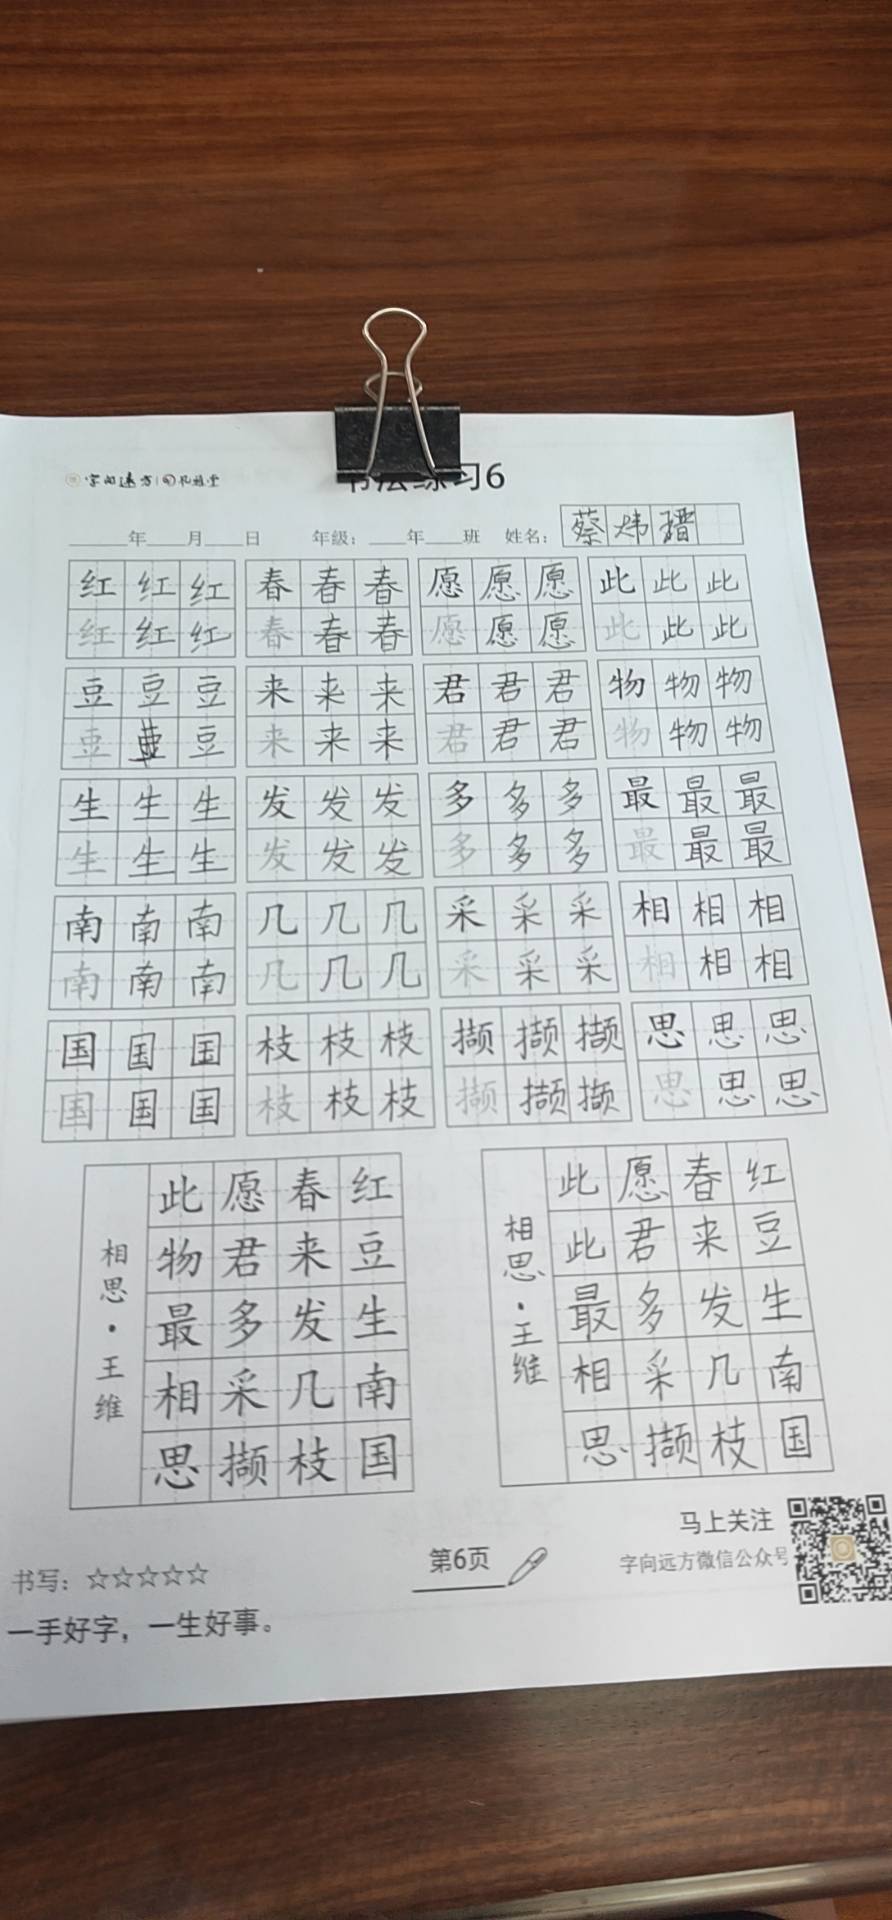 字向远方
书法练习6
年 月 日 年级： 年 班 姓名：蔡炜瑨
红红红 春春春 愿愿愿 此此此
红红红 春春春 愿愿愿 此此此
豆豆豆 来来来 君君君 物物物
豆豆 来来来 君君君 物物物
生生生 发发发 多多多 最最最
生生生 发发发 多多多 最最最
南南南 几几几 采采采 相相相
南南南 几几几 采采采 相相相
国国国 枝枝枝 撷撷撷 思思思
国国国 枝枝枝 撷撷撷 思思思
红豆生南国
春来发几枝
愿君多采撷
此物最相思
相思·王维
红豆生南国
春来发几枝
愿君多采撷
此此最相思
相思·王维
书写：☆☆☆☆☆
一手好字，一生好事。
第6页
马上关注
字向远方微信公众号